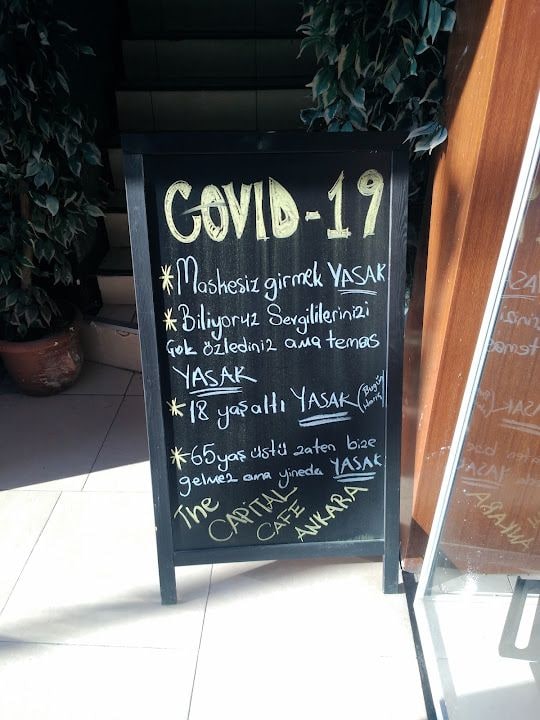 COVID-19
* Maskesiz girmek YASAK
* Biliyoruz Sevgililerinizi
çok özlediniz ama temas
YASAK
* 18 yaş altı YASAK (Bugün Hariç)
* 65 yaş üstü zaten bize
gelmez ama yinede YASAK
The CAPITAL
CAFE ANKARA